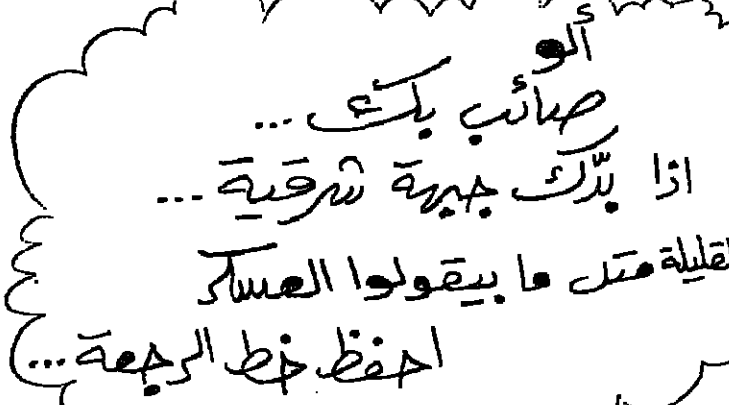 ألو
صائب بك ...
اذا بدّك جبهة شرقية ...
لقليلة متل ما بيقولوا العسكر
احفظ خط الرجعة ...